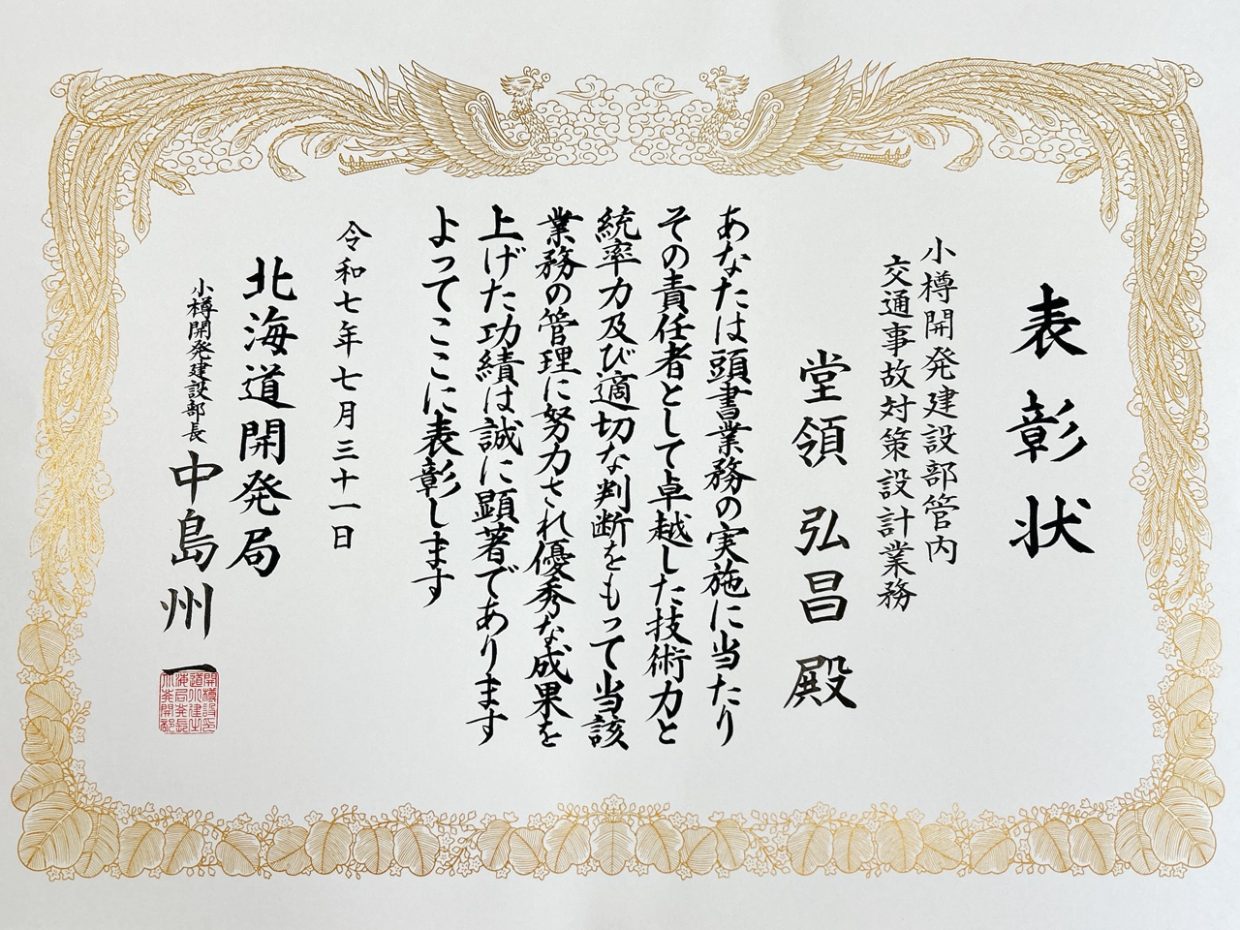 表彰状
小樽開発建設部管内
交通事故対策設計業務
堂領 弘昌 殿
あなたは頭書業務の実施に当たり
その責任者として卓越した技術力と
統率力及び適切な判断をもって当該
業務の管理に努力され優秀な成果を
上げた功績は誠に顕著であります
よってここに表彰します
令和七年七月三十一日
北海道開発局
小樽開発建設部長 中島州一